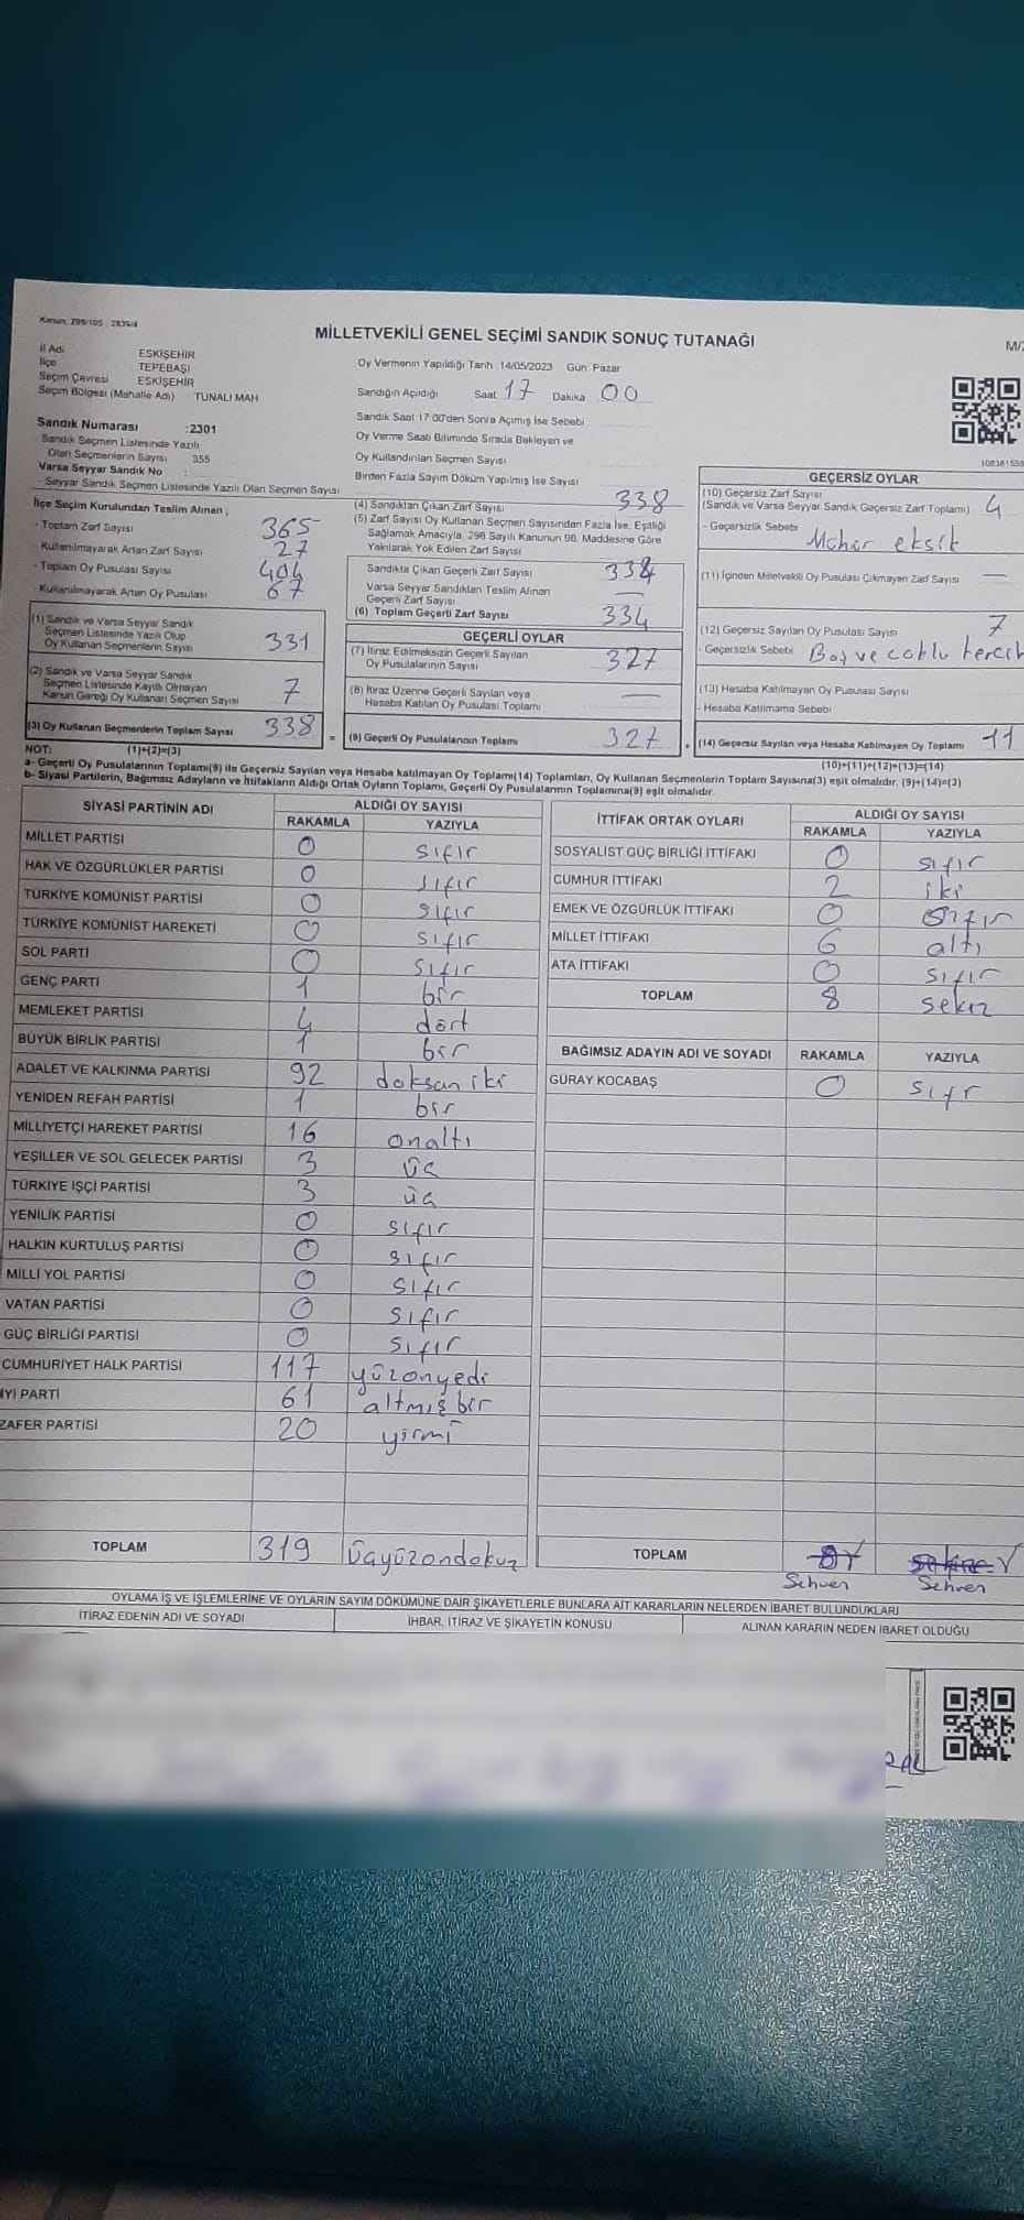 MİLLETVEKİLİ GENEL SEÇİMİ SANDIK SONUÇ TUTANAĞI
İl Adı ESKİŞEHİR
İlçe TEPEBAŞI
Seçim Çevresi ESKİŞEHİR
Seçim Bölgesi (Mahalle Adı) TUNALI MAH
Sandık Numarası :2301
Sandık Seçmen Listesinde Yazılı
Olan Seçmenlerin Sayısı 355
Varsa Seyyar Sandık No :
Seyyar Sandık Seçmen Listesinde Yazılı Olan Seçmen Sayısı
Oy Vermenin Yapıldığı Tarih :14/05/2023 Gün: Pazar
Sandığın Açıldığı Saat 17 Dakika 00
Sandık Saat 17:00'den Sonra Açılmış İse Sebebi
Oy Verme Saati Bitiminde Sırada Bekleyen ve
Oy Kullandırılan Seçmen Sayısı
Birden Fazla Sayım Döküm Yapılmış İse Sayısı
İlçe Seçim Kurulundan Teslim Alınan ;
- Toplam Zarf Sayısı 365
- Kullanılmayarak Artan Zarf Sayısı 27
- Toplam Oy Pusulası Sayısı 404
- Kullanılmayarak Artan Oy Pusulası 67
(1) Sandık ve Varsa Seyyar Sandık
Seçmen Listesinde Yazılı Olup
Oy Kullanan Seçmenlerin Sayısı 331
(2) Sandık ve Varsa Seyyar Sandık
Seçmen Listesinde Kayıtlı Olmayan
Kanun Gereği Oy Kullanan Seçmen Sayısı 7
(3) Oy Kullanan Seçmenlerin Toplam Sayısı 338
(4) Sandıktan Çıkan Zarf Sayısı 338
(5) Zarf Sayısı Oy Kullanan Seçmen Sayısından Fazla İse, Eşitliği
Sağlamak Amacıyla, 298 Sayılı Kanunun 98. Maddesine Göre
Yakılarak Yok Edilen Zarf Sayısı
Sandıkta Çıkan Geçerli Zarf Sayısı 334
Varsa Seyyar Sandıktan Teslim Alınan
Geçerli Zarf Sayısı —
(6) Toplam Geçerli Zarf Sayısı 334
GEÇERLİ OYLAR
(7) İtiraz Edilmeksizin Geçerli Sayılan
Oy Pusulalarının Sayısı 327
(8) İtiraz Üzerine Geçerli Sayılan veya
Hesaba Katılan Oy Pusulası Toplamı —
= (9) Geçerli Oy Pusulalarının Toplamı 327
GEÇERSİZ OYLAR
(10) Geçersiz Zarf Sayısı
(Sandık ve Varsa Seyyar Sandık Geçersiz Zarf Toplamı) 4
- Geçersizlik Sebebi Mühür eksik
(11) İçinden Milletvekili Oy Pusulası Çıkmayan Zarf Sayısı —
(12) Geçersiz Sayılan Oy Pusulası Sayısı 7
- Geçersizlik Sebebi Boş ve çoklu tercih
(13) Hesaba Katılmayan Oy Pusulası Sayısı
- Hesaba Katılmama Sebebi
+ (14) Geçersiz Sayılan veya Hesaba Katılmayan Oy Toplamı 11
NOT: (1)+(2)=(3) (10)+(11)+(12)+(13)=(14)
a- Geçerli Oy Pusulalarının Toplamı(9) ile Geçersiz Sayılan veya Hesaba katılmayan Oy Toplamı(14) Toplamları, Oy Kullanan Seçmenlerin Toplam Sayısına(3) eşit olmalıdır. (9)+(14)=(3)
b- Siyasi Partilerin, Bağımsız Adayların ve İttifakların Aldığı Ortak Oyların Toplamı, Geçerli Oy Pusulalarının Toplamına(9) eşit olmalıdır.
SİYASİ PARTİNİN ADI ALDIĞI OY SAYISI
RAKAMLA YAZIYLA
MİLLET PARTİSİ 0 sıfır
HAK VE ÖZGÜRLÜKLER PARTİSİ 0 sıfır
TÜRKİYE KOMÜNİST PARTİSİ 0 sıfır
TÜRKİYE KOMÜNİST HAREKETİ 0 sıfır
SOL PARTİ 0 sıfır
GENÇ PARTİ 1 bir
MEMLEKET PARTİSİ 4 dört
BÜYÜK BİRLİK PARTİSİ 1 bir
ADALET VE KALKINMA PARTİSİ 92 doksan iki
YENİDEN REFAH PARTİSİ 1 bir
MİLLİYETÇİ HAREKET PARTİSİ 16 onaltı
YEŞİLLER VE SOL GELECEK PARTİSİ 3 üç
TÜRKİYE İŞÇİ PARTİSİ 3 üç
YENİLİK PARTİSİ 0 sıfır
HALKIN KURTULUŞ PARTİSİ 0 sıfır
MİLLİ YOL PARTİSİ 0 sıfır
VATAN PARTİSİ 0 sıfır
GÜÇ BİRLİĞİ PARTİSİ 0 sıfır
CUMHURİYET HALK PARTİSİ 117 yüzonyedi
İYİ PARTİ 61 altmış bir
ZAFER PARTİSİ 20 yirmi
TOPLAM 319 üçyüzondokuz
İTTİFAK ORTAK OYLARI ALDIĞI OY SAYISI
RAKAMLA YAZIYLA
SOSYALİST GÜÇ BİRLİĞİ İTTİFAKI 0 sıfır
CUMHUR İTTİFAKI 2 iki
EMEK VE ÖZGÜRLÜK İTTİFAKI 0 sıfır
MİLLET İTTİFAKI 6 altı
ATA İTTİFAKI 0 sıfır
TOPLAM 8 sekiz
BAĞIMSIZ ADAYIN ADI VE SOYADI RAKAMLA YAZIYLA
GÜRAY KOCABAŞ 0 sıfr
TOPLAM
Sehven Sehven
OYLAMA İŞ VE İŞLEMLERİNE VE OYLARIN SAYIM DÖKÜMÜNE DAİR ŞİKAYETLERLE BUNLARA AİT KARARLARIN NELERDEN İBARET BULUNDUKLARI
İTİRAZ EDENİN ADI VE SOYADI İHBAR, İTİRAZ VE ŞİKAYETİN KONUSU ALINAN KARARIN NEDEN İBARET OLDUĞU